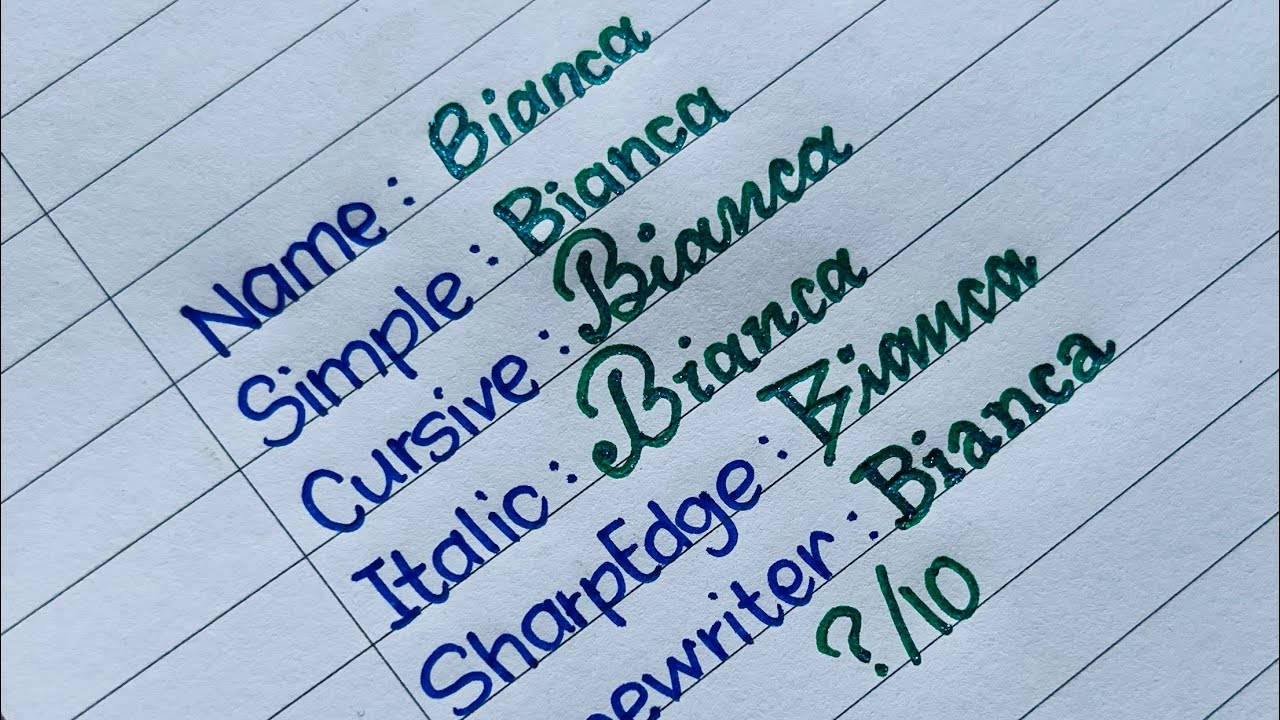 Name : Bianca
Simple : Bianca
Cursive : Bianca
Italic : Bianca
SharpEdge : Bianca
ewriter : Bianca
?/10